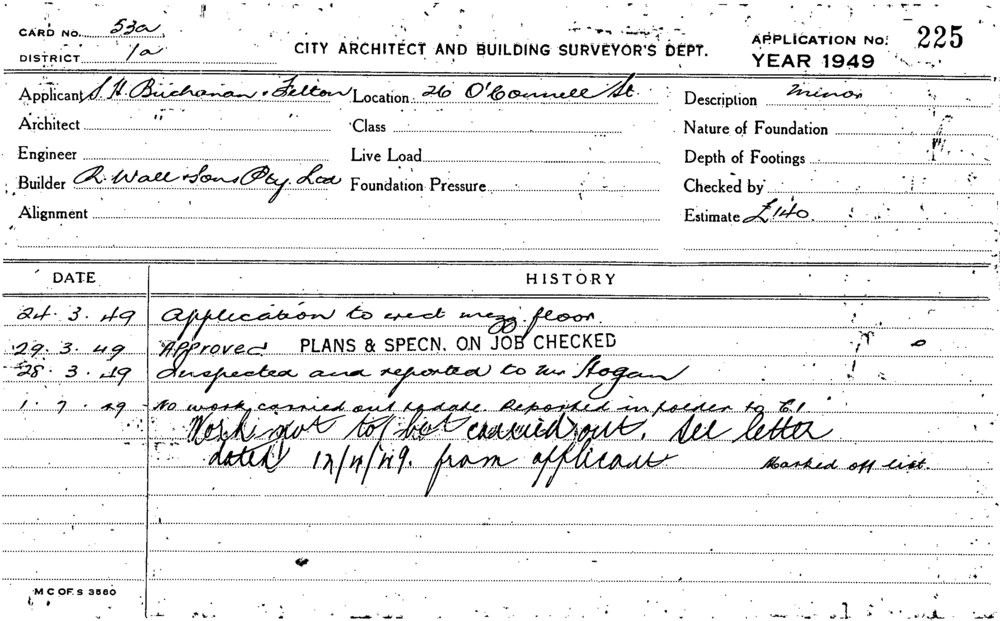 CARD No. 53a
DISTRICT 1a
CITY ARCHITECT AND BUILDING SURVEYOR'S DEPT.
APPLICATION No. 225
YEAR 1949
Applicant S. H. Buchanan & Felton Location 26 O'Connell St. Description minor
Architect " " Class Nature of Foundation
Engineer Live Load Depth of Footings
Builder R. Wall & Sons Pty. Ltd Foundation Pressure Checked by
Alignment Estimate £140
DATE HISTORY
24.3.49 Application to erect mezz. floor
29.3.49 Approved PLANS & SPECN. ON JOB CHECKED
28.3.49 Inspected and reported to Mr Hogan
1.7.49 No work carried out to date. Reported in folder to
Work not to be carried out. See letter
dated 12/4/49. from applicant Marked off list.
M C OF. S 3560